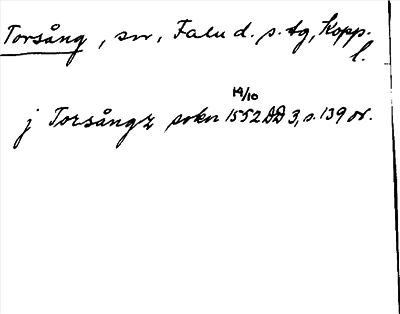 Torsång, sn, Falu d. s. tg, Kopp.
l.
19/10
j Torsångz sokn 1552 DD 3, s. 139 or.